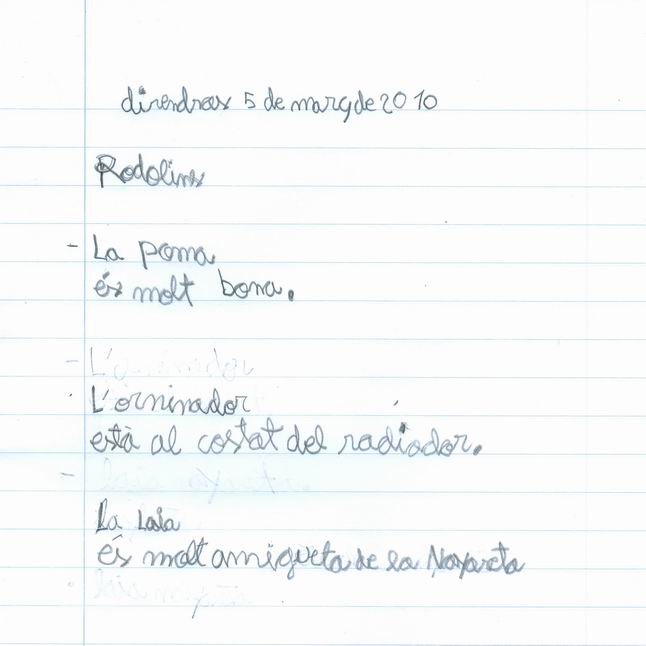 divendres 5 de març de 2010
Rodolins
- La poma
és molt bona.
- L'
L'orninador
està al costat del radiador.
-
La Laia
és molt amigueta de la Nayareta